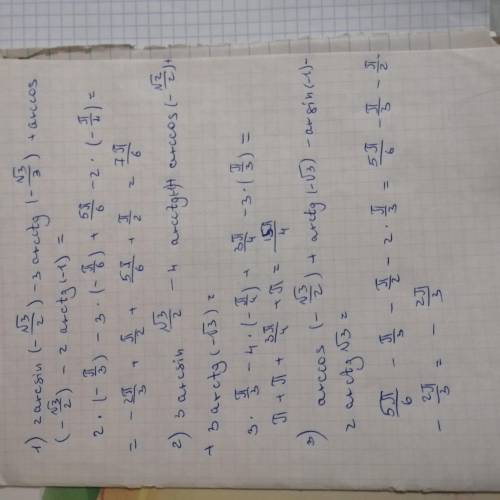 1) 2 arcsin (-√3/2) - 3 arctg (-√3/3) + arccos
(-√3/2) - 2 arctg (-1) =
2 · (-π/3) - 3 · (-π/6) + 5π/6 - 2 · (-π/4) =
= - 2π/3 + π/2 + 5π/6 + π/2 = 7π/6
2) 3 arcsin √3/2 - 4 arctg(-1)+ arccos (-√2/2)+
+ 3 arctg (-√3) =
3 · π/3 - 4 · (-π/4) + 3π/4 - 3 · (π/3) =
π + π + 3π/4 + π = 15π/4
3) arccos (-√3/2) + arctg (-√3) - arsin (-1) -
2 arctg √3 =
5π/6 - π/3 - π/2 - 2 · π/3 = 5π/6 - π/3 - π/2
- 2π/3 = - 2π/3